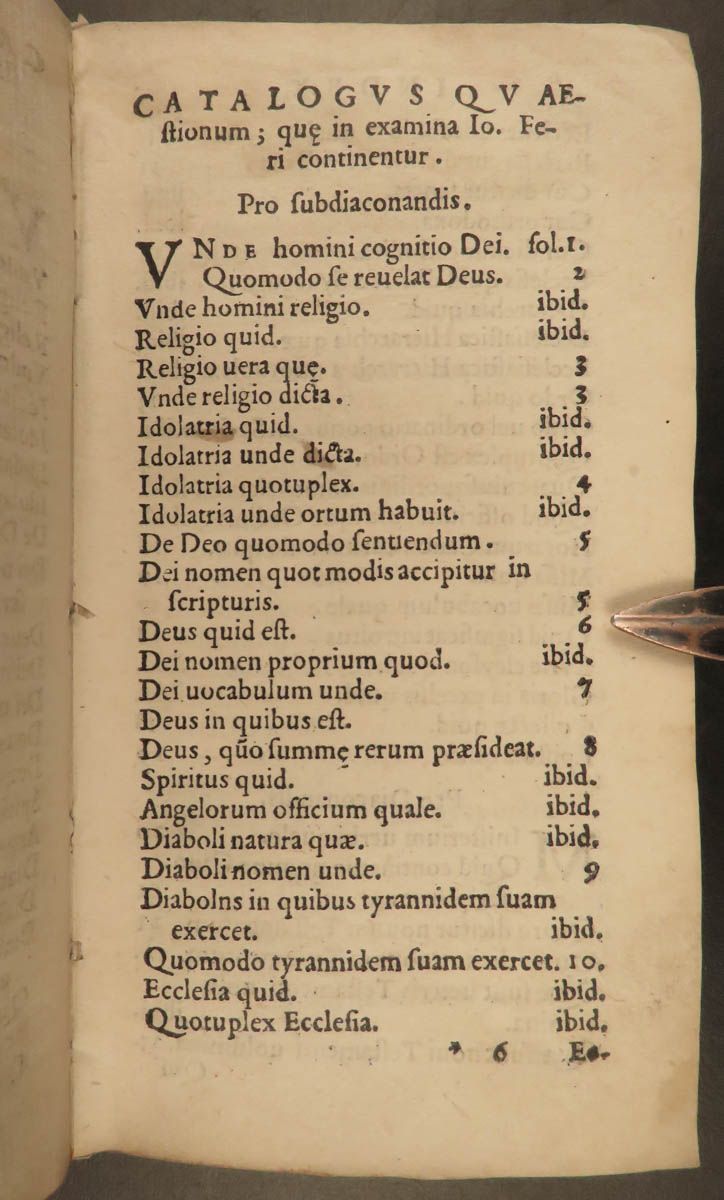 CATALOGVS QVAE-
ſtionum; quę in examina Io. Fe-
ri continentur.
Pro ſubdiaconandis.
VNDE homini cognitio Dei. fol.1.
Quomodo ſe reuelat Deus. 2
Vnde homini religio. ibid.
Religio quid. ibid.
Religio uera quę. 3
Vnde religio dicta. 3
Idolatria quid. ibid.
Idolatria unde dicta. ibid.
Idolatria quotuplex. 4
Idolatria unde ortum habuit. ibid.
De Deo quomodo ſentiendum. 5
Dei nomen quot modis accipitur in
ſcripturis. 5
Deus quid eſt. 6
Dei nomen proprium quod. ibid.
Dei uocabulum unde. 7
Deus in quibus eſt.
Deus, qūo ſummę rerum præſideat. 8
Spiritus quid. ibid.
Angelorum officium quale. ibid.
Diaboli natura quæ. ibid.
Diaboli nomen unde. 9
Diabolns in quibus tyrannidem ſuam
exercet. ibid.
Quomodo tyrannidem ſuam exercet. 10.
Eccleſia quid. ibid.
Quotuplex Eccleſia. ibid.
* 6 Ec-